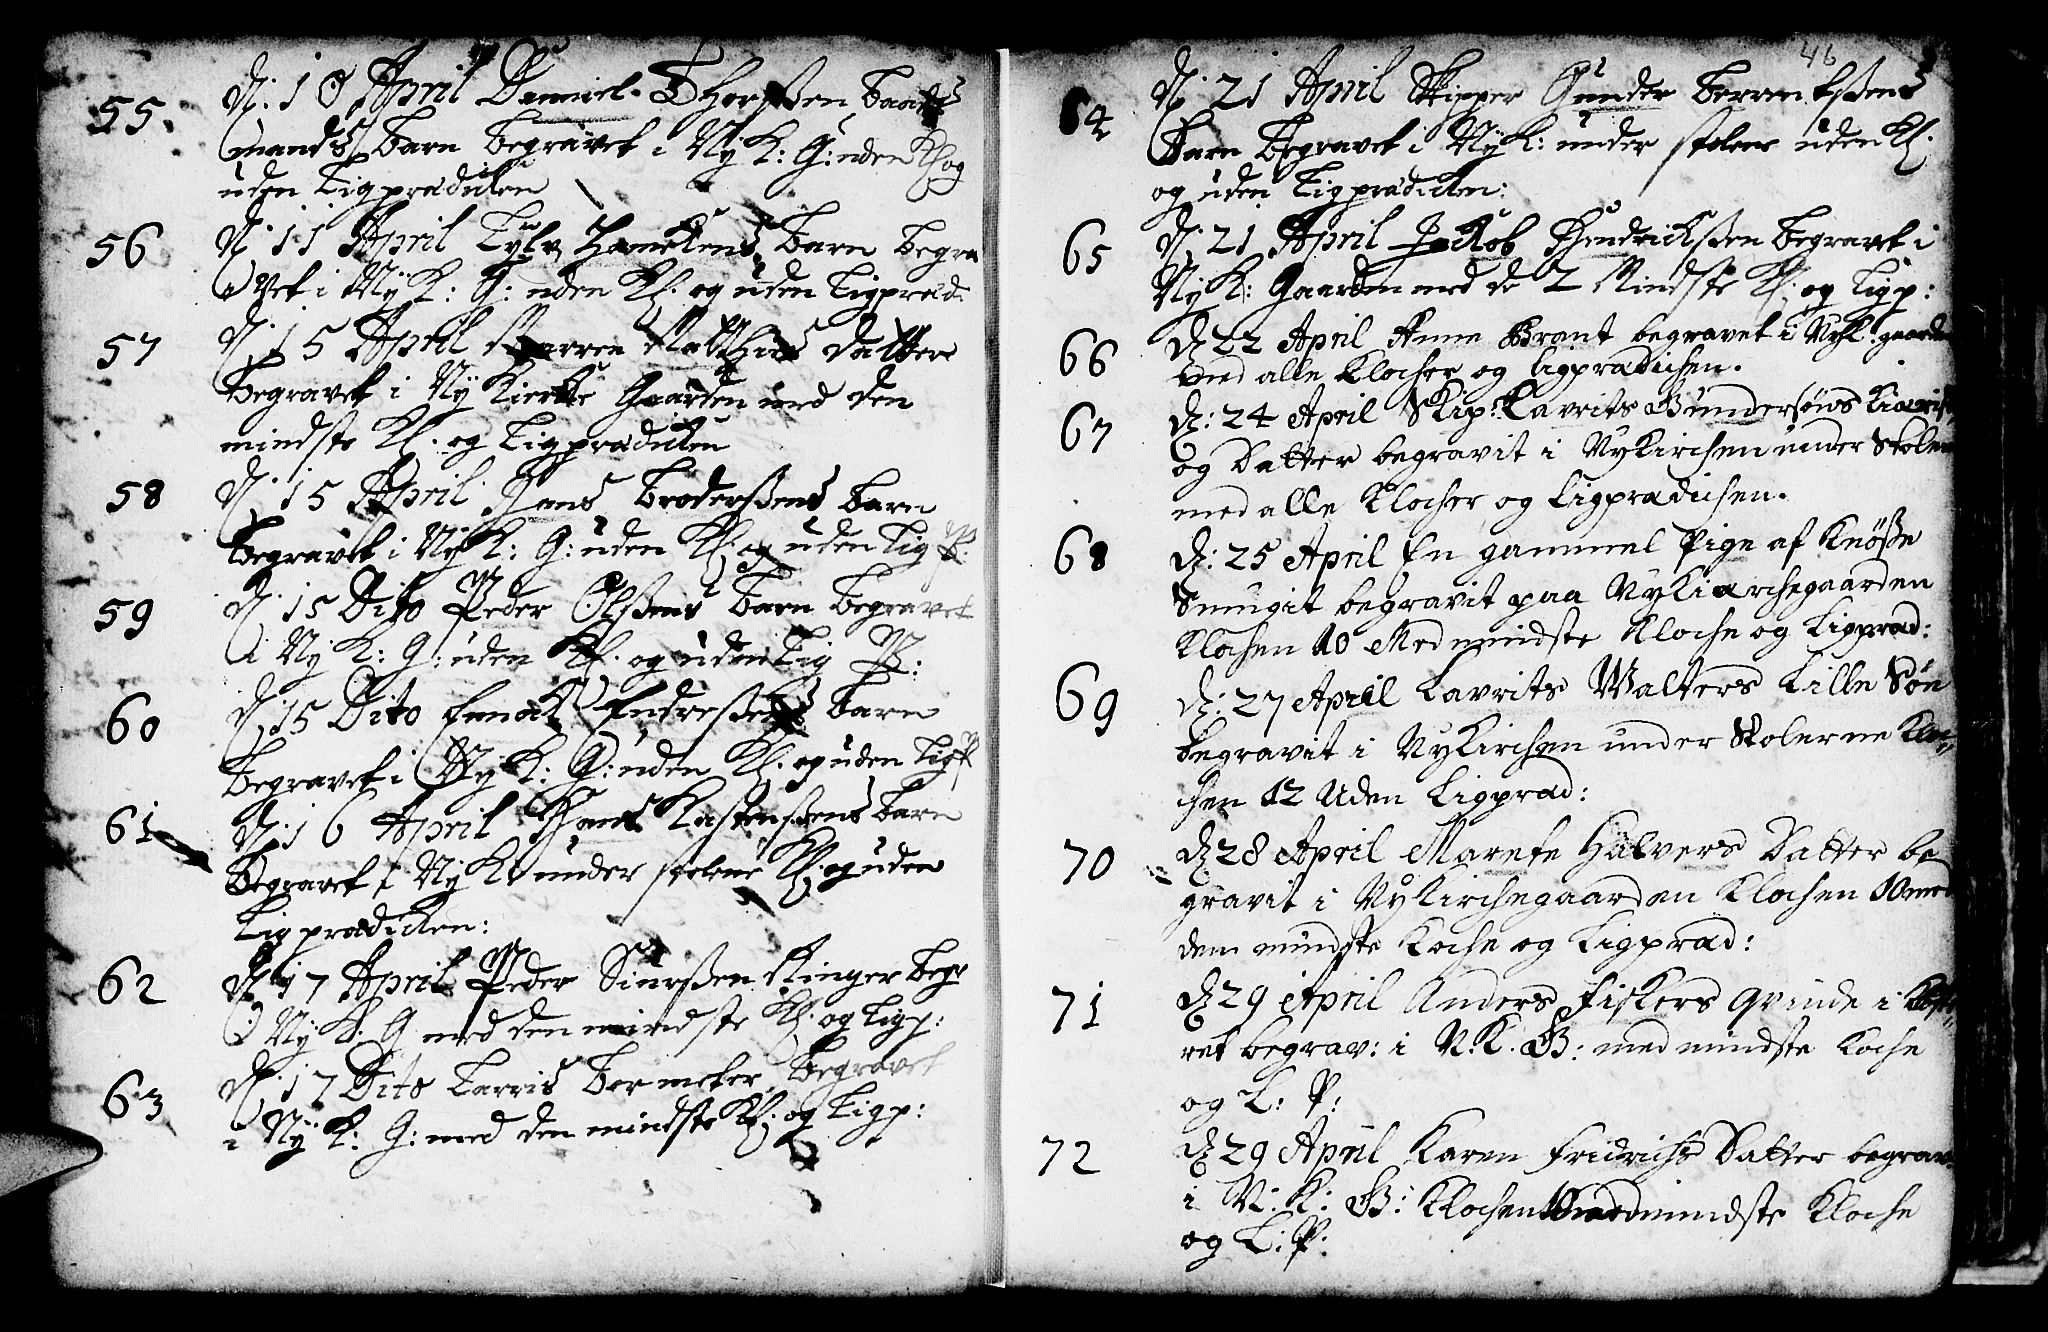 55. d: 10 April Danniel Thorsßen baads
mands barn begravet i Ny K: G: uden Kl: og
uden Ligprædicken
56 d: 11 April Tyls Hanckens barn begra
vet i Ny K: G: uden Kl. og uden Ligpræd:
57 d: 15 April Matthias datter
begravet i Ny Kircke Gaarden med den
mindste Kl. og Ligprædicken
58 d: 15 April Hans Brodersßens barn
begravet i Ny K: G: uden Kl: og uden Lig P.
59 d: 15 Dito Peder Olsßens barn begravet
i Ny K: G: uden Kl. og uden Lig P:
60 d: 15 Dito Endresßens barn
begravet i Ny K: G: uden Kl. og uden Lig P
61 d: 16 April Hans Kastensßens barn
begravet i Ny K: under stolene Kl. og uden
Ligprædicken:
62 d: 17 April Peder Siursßen Ringer begr
i Ny K: G med den mindste Kl. og Ligp:
63 d: 17 Dito Larris begravet
i Ny K: G: med den mindste Kl. og Ligp:
46
64 d: 21 April Skipper Gunder Berrentsßens
barn begravet i Ny K: under stolene uden Kl.
og uden Ligprædicken:
65 d: 21 April Jackob Hendricksßen begravet i
Ny K: Gaarden med de 2 Mindste Kl: og Ligp:
66 d: 22 April Anne Brant begravet i Ny K: gaarden
med alle Klocher og ligprædichen.
67 d: 24 April Skip: Lavrits Gundersøns Kiæriste
og Datter begravit i Nykirchen under Stolene
med alle Klocher og Ligprædichen.
68 d: 25 April En gammel Pige af Knöße
Smugit begravit paa Nykiarchegaarden
Klochen 10 Med mindste Kloche og Ligpræd:
69 d: 27 April Lavrits Walters Lille Søn
begravit i Nykirchen under Stolerne Klo„
chen 12 Uden Ligpræd:
70 d: 28 April Marete Halvers Datter be
gravit i Nykirchegaarden Klochen 10 med
dem mindste Koche og Ligpræd:
71 d: 29 April Anders Fiskers Qvinde i
ret begrav: i N: K. G: med mindste Koche
og L: P:
72 d: 29 April Karen Fridrichs Datter begrav:
i N: K: G: Klochen 10 med mindste Kloche
og L: P: